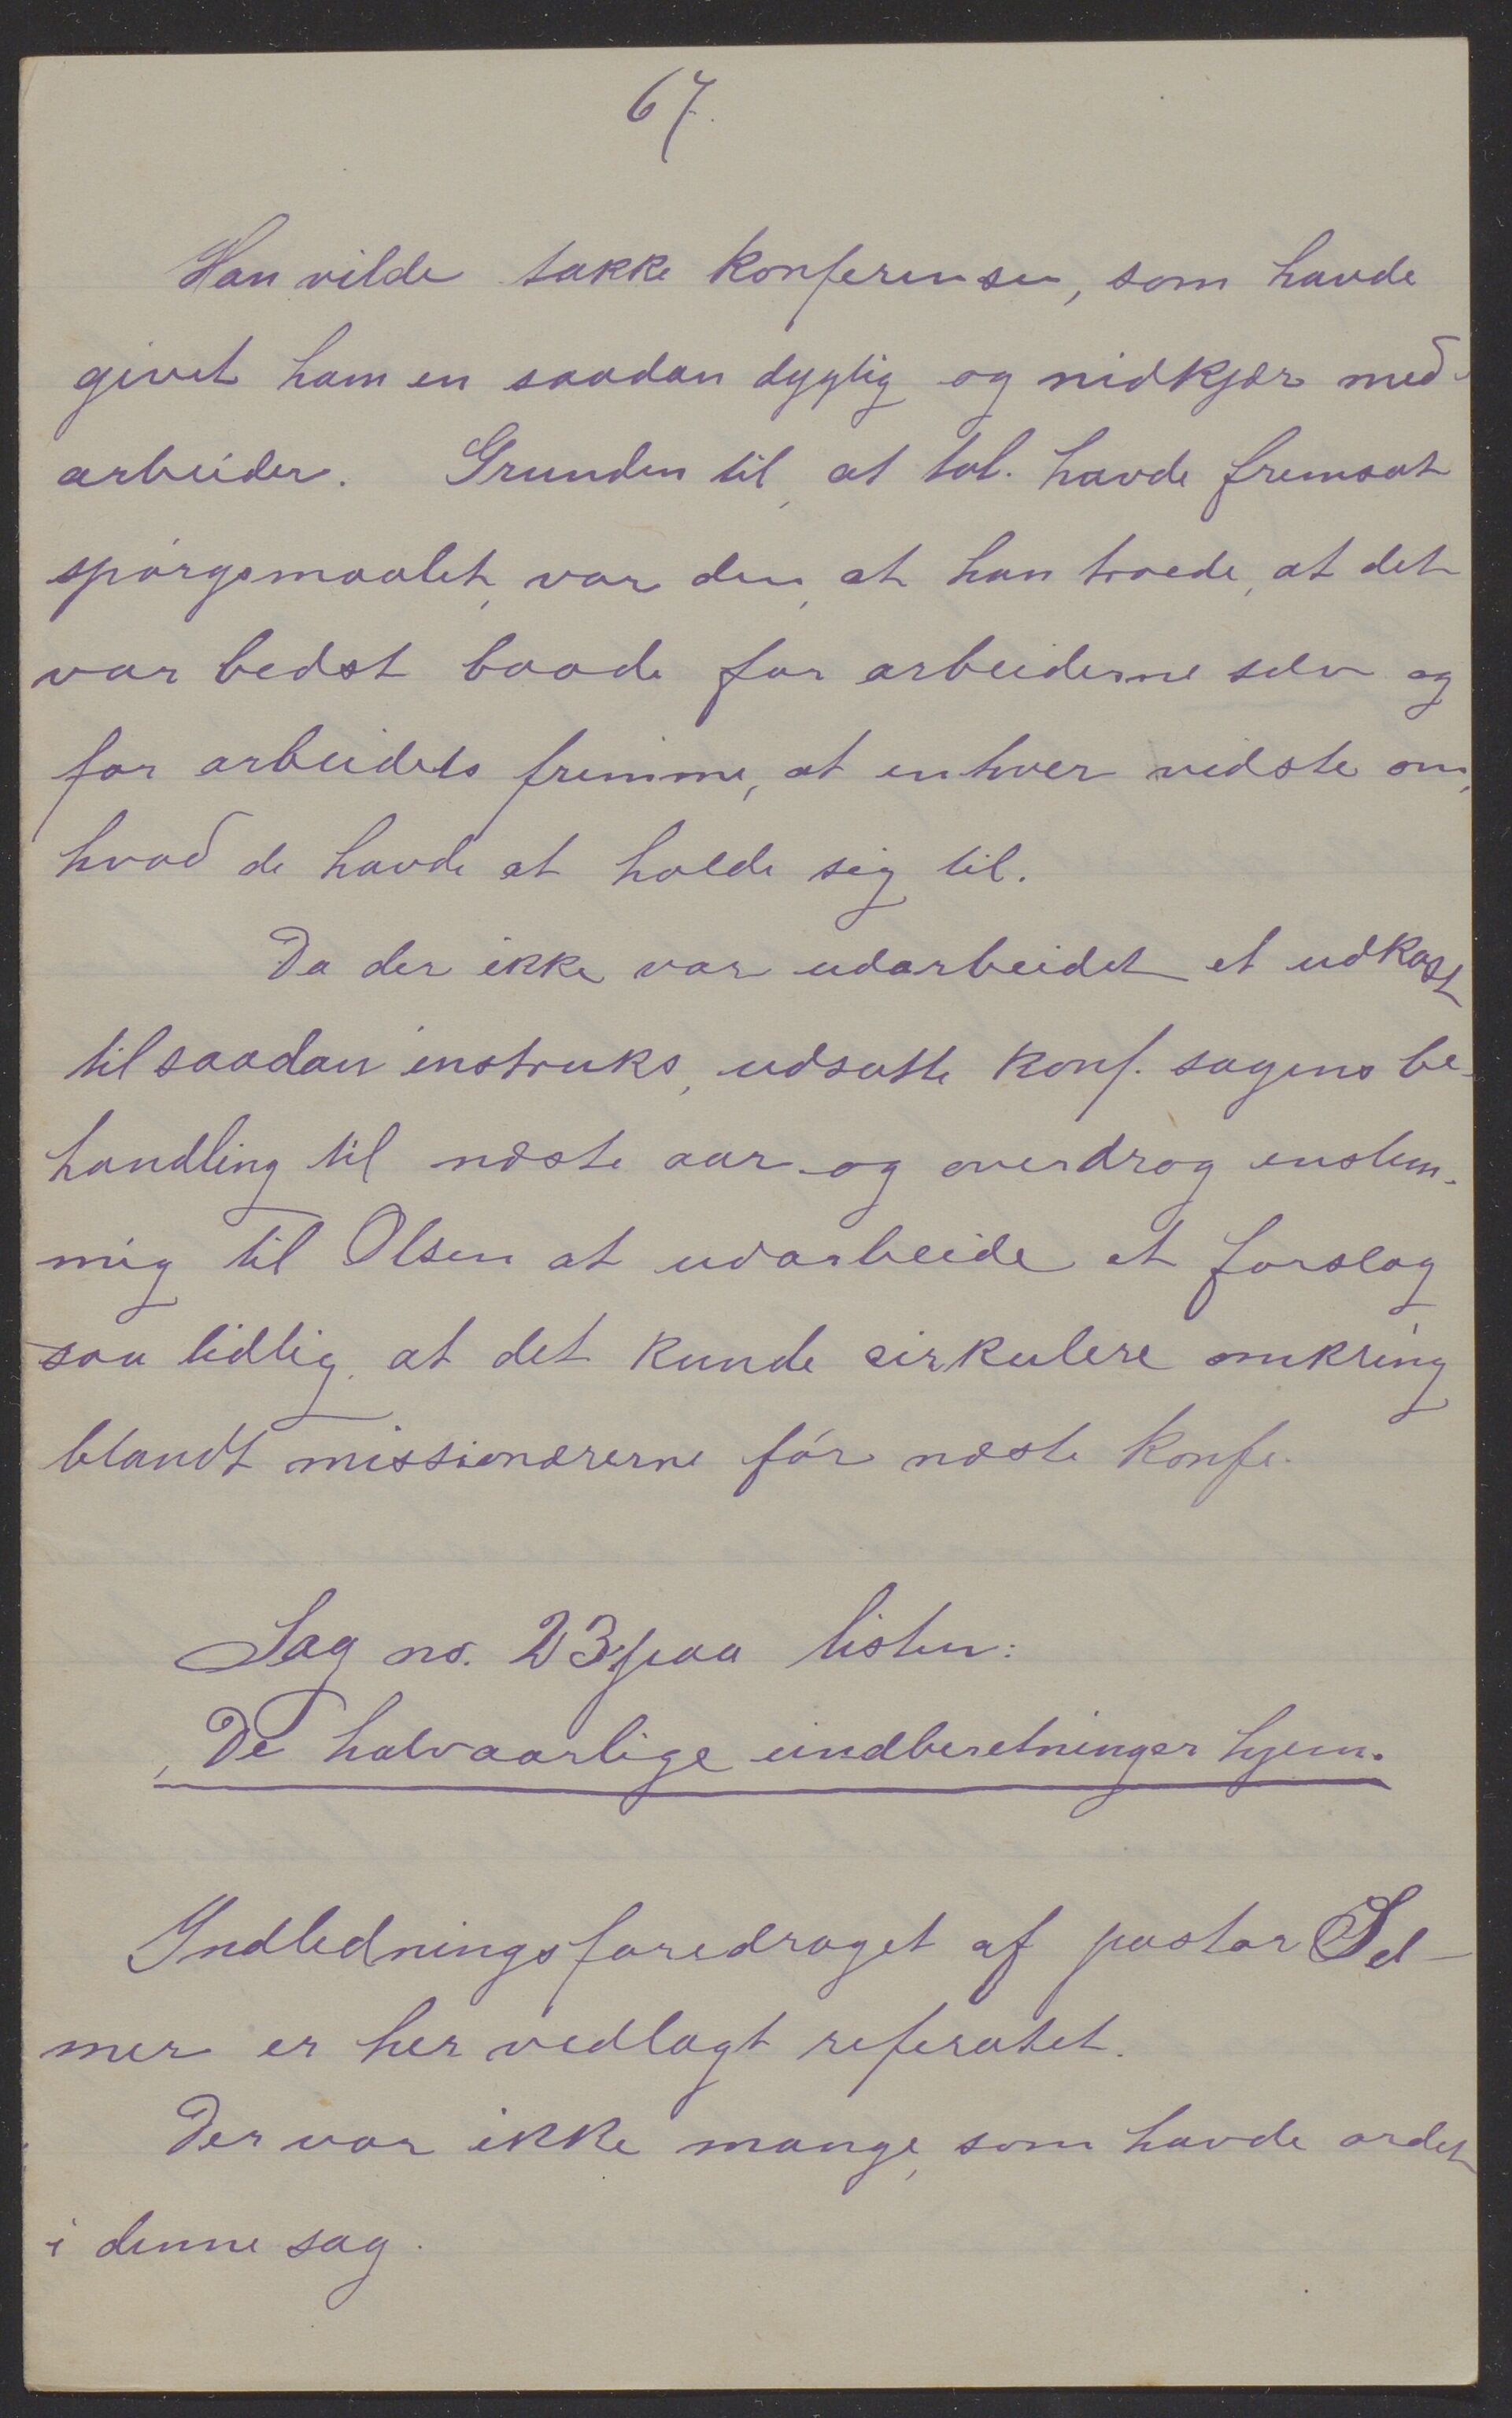 67.
Han vilde takke konferensen, som havde
givet ham en saadan dygtig og nidkjær med-
arbeider. Grunden til, at tal. havde fremsat
spørgsmaalet, var den, at han troede, at det
var bedst baade for arbeiderne selv og
for arbeidets fremme, at enhver vidste om,
hvad de havde at holde sig til.
Da der ikke var udarbeidet et udkast
til saadan instruks, udsatte konf. sagens be-
handling til næste aar og overdrog enstem-
mig til Olsen at udarbeide et forslag
saa tidlig, at det kunde sirkulere omkring
blandt missionærerne før næste konfe.
Sag no. 23 paa listen:
De halvaarlige indberetninger hjem.
Indledningsforedraget af pastor Sel-
mer er her vedlagt referatet.
Der var ikke mange, som havde ordet
i denne sag.